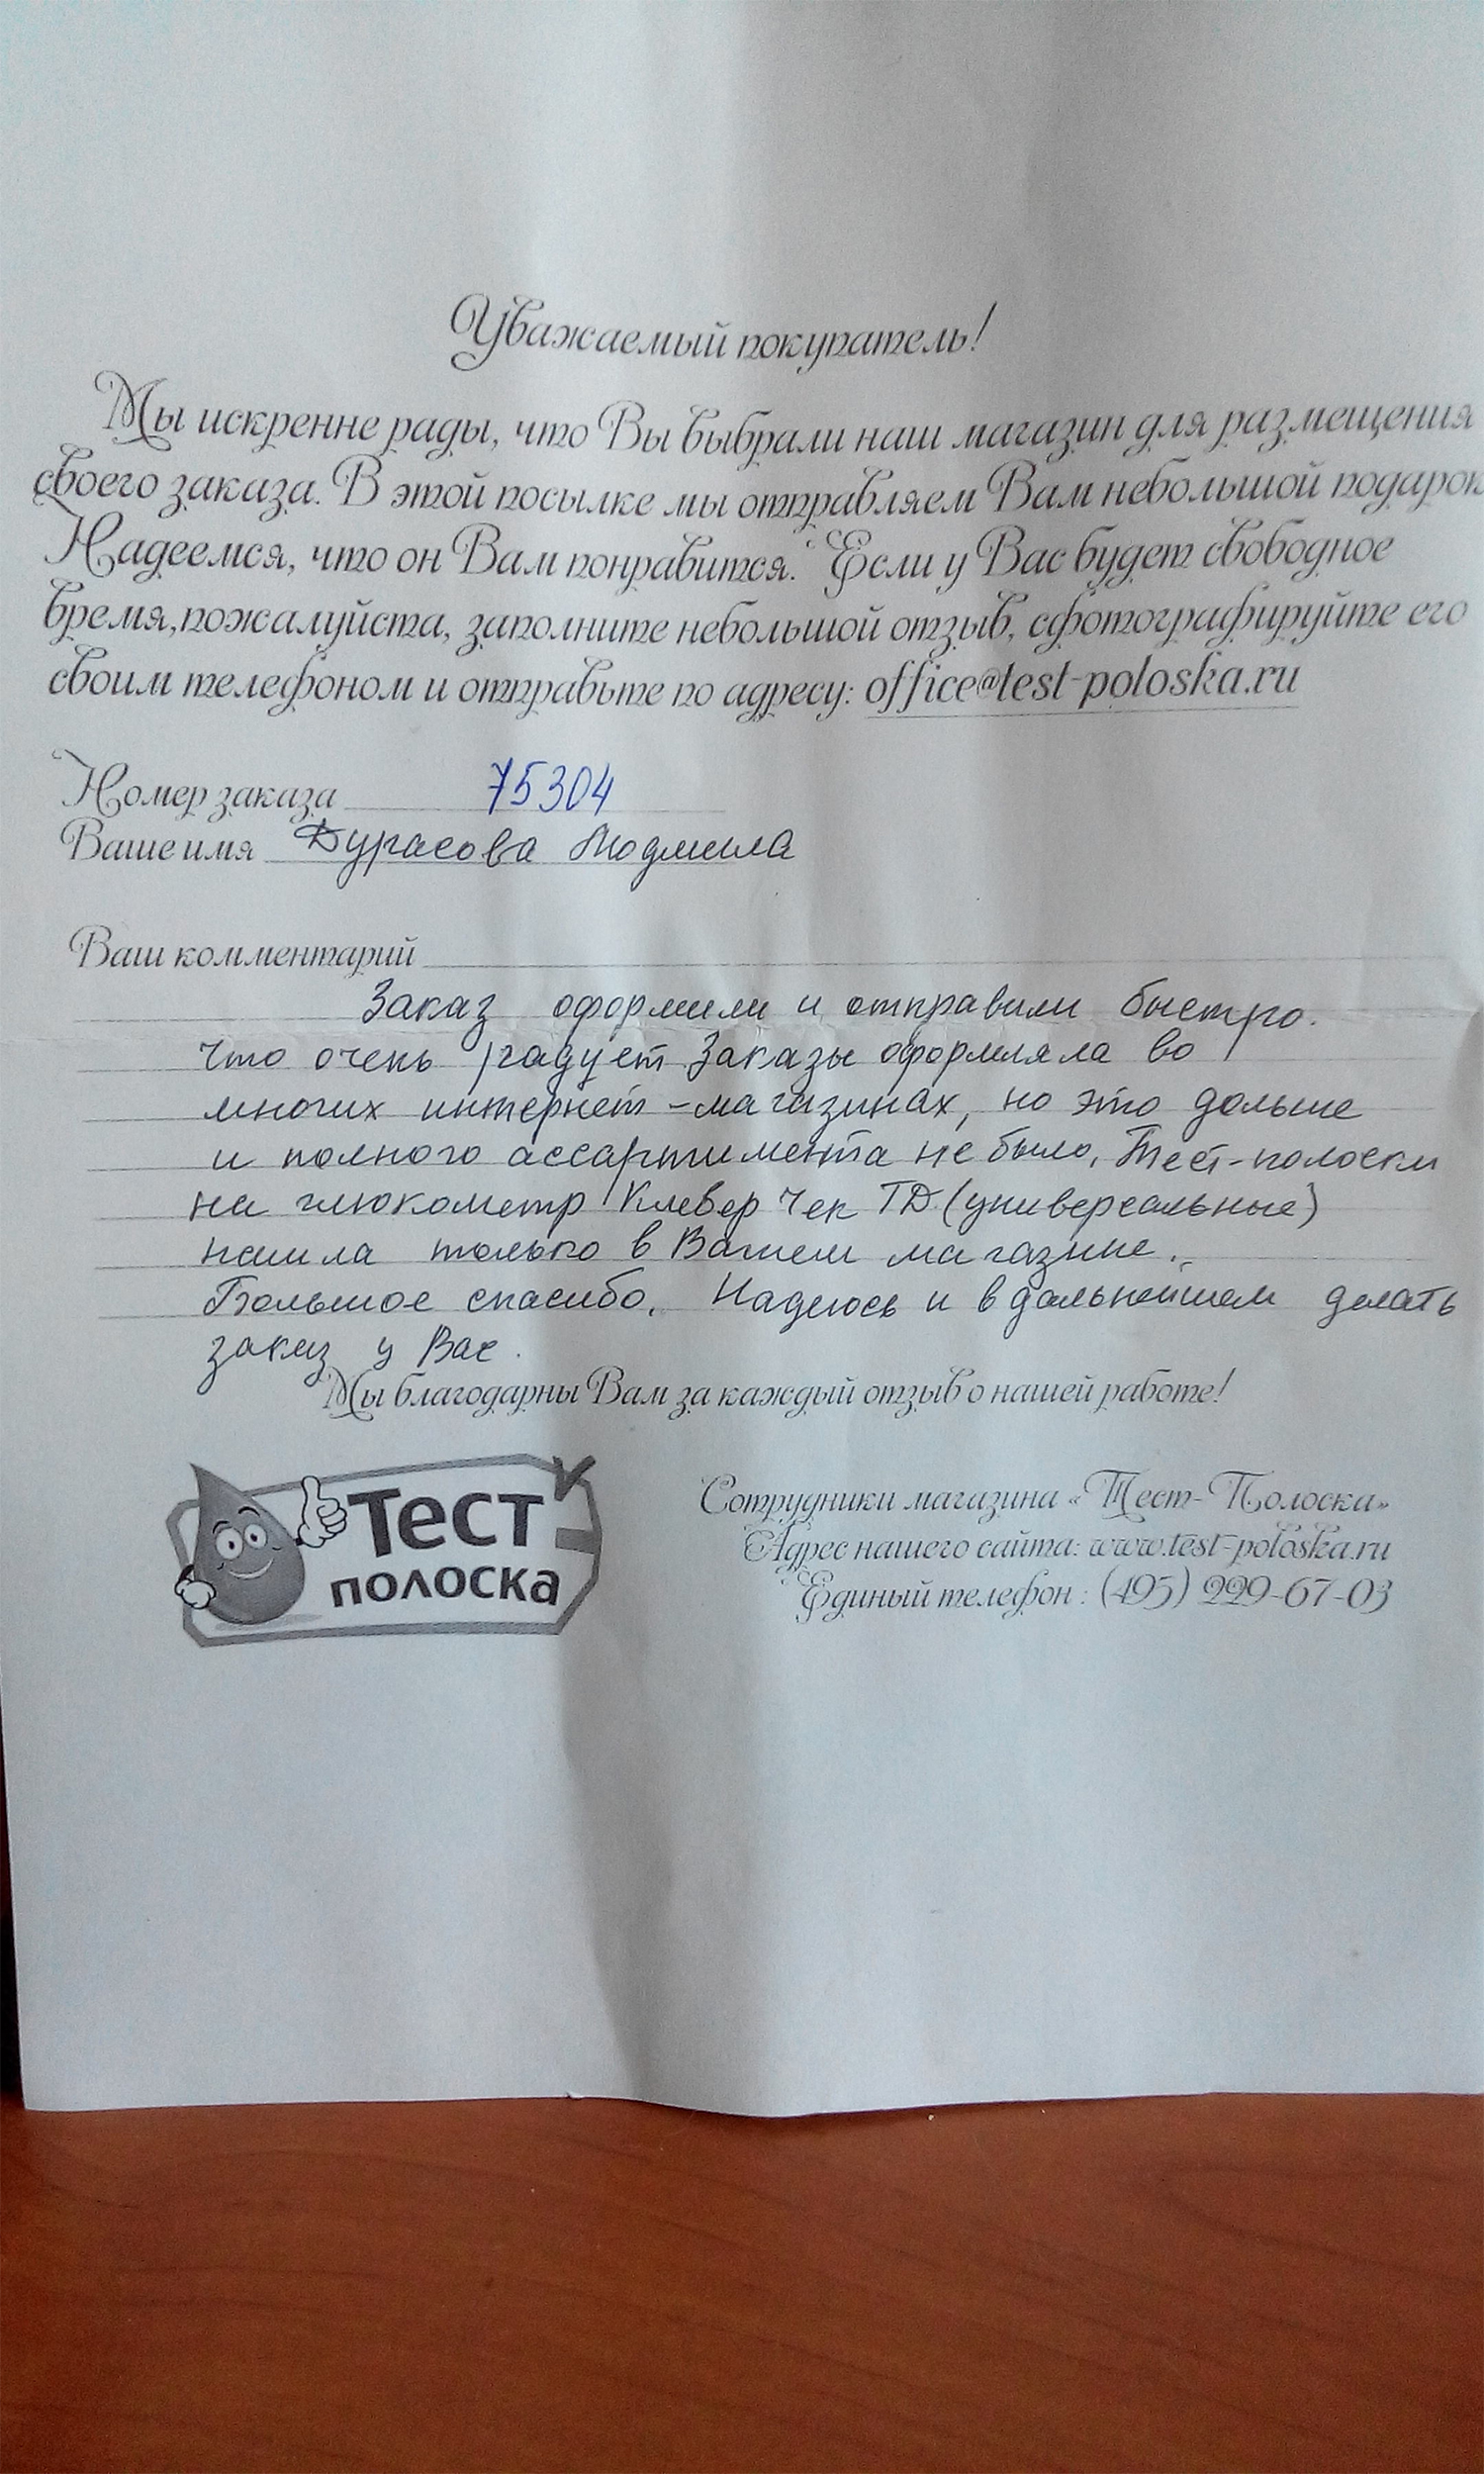 Уважаемый покупатель!
Мы искренне рады, что Вы выбрали наш магазин для размещения
своего заказа. В этой посылке мы отправляем Вам небольшой подарок
Надеемся, что он Вам понравится. Если у Вас будет свободное
время,пожалуйста, заполните небольшой отзыв, сфотографируйте его
своим телефоном и отправьте по адресу: office@test-poloska.ru
Номер заказа 75304
Ваше имя Дурасова Людмила
Ваш комментарий
Заказ оформили и отправили быстро.
Что очень радует. Заказы оформляла во
многих интернет-магазинах, но это дольше
и полного ассартимента не было. Тест-полоски
на глюкометр Клевер Чек TD (универсальные)
нашла только в Вашем магазине.
Большое спасибо. Надеюсь и в дальнейшем делать
заказ у Вас.
Мы благодарны Вам за каждый отзыв о нашей работе!
Тест
полоска
Сотрудники магазина «Тест-Полоска»
Адрес нашего сайта: www.test-poloska.ru
Единый телефон : (495) 229-67-03